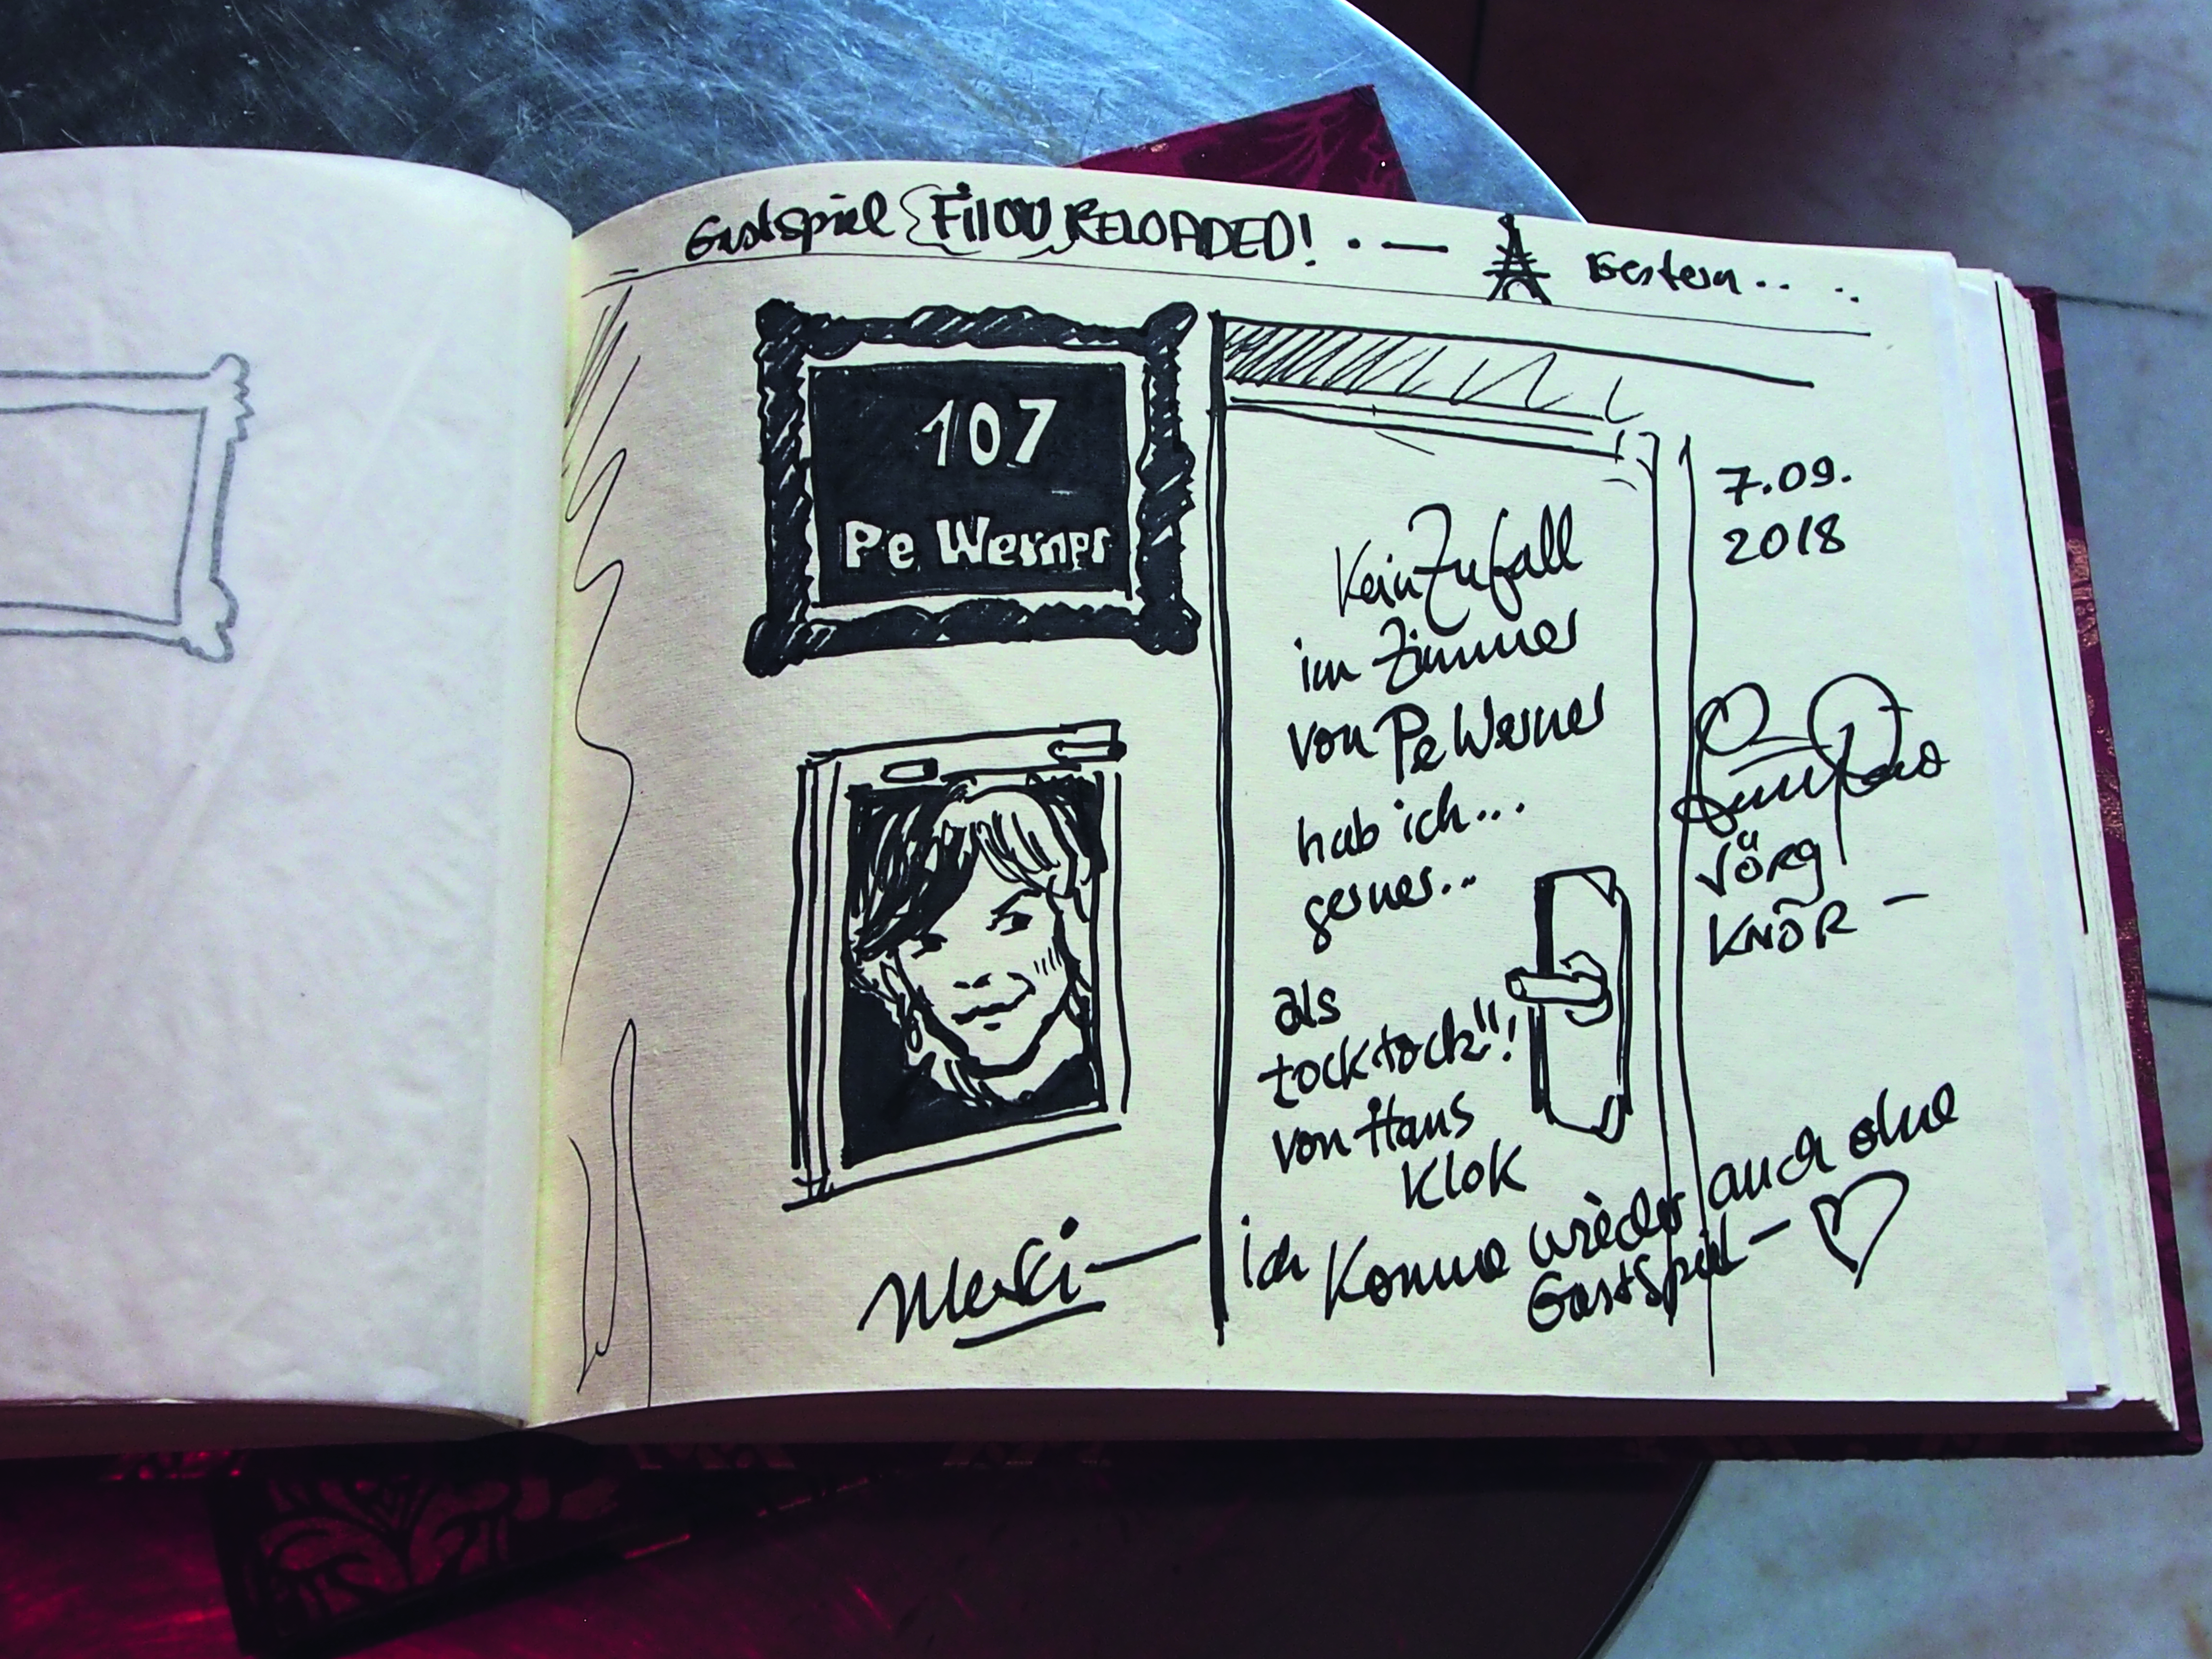 Gastspiel FiloU RELOADED! . — Gestern.. ..
107
Pe Werner
Kein Zufall
im Zimmer
von Pe Werner
hab ich...
gerner...
als
tocktock"!
von Hans
Klok
7.09.
2018
JÖRG
KNÖR —
Merci — ich komme wieder auch ohne
Gastspiel —